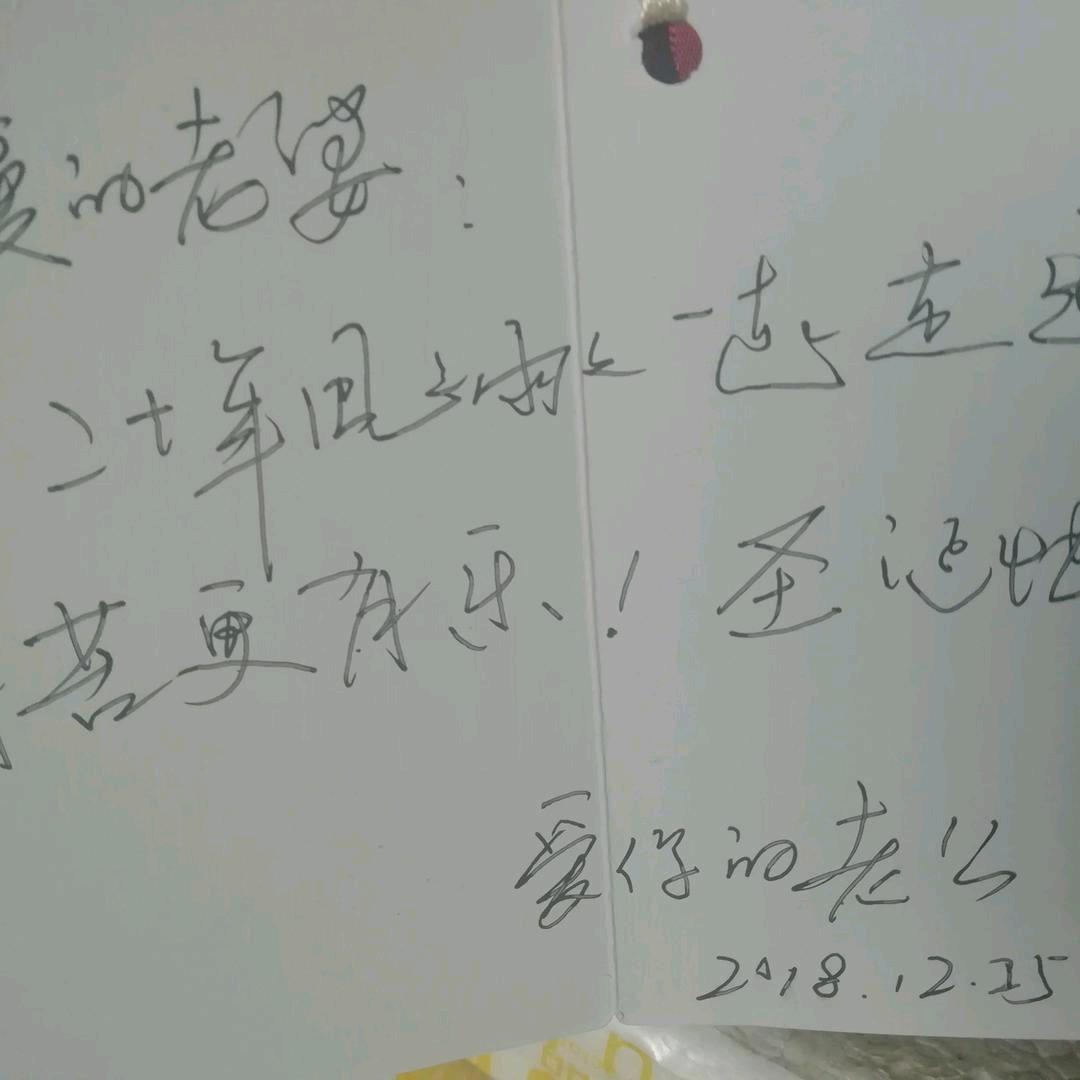 爱的老婆:
二十年风风雨雨一起走过
苦更有乐!圣诞快
爱你的老公
2018.12.25